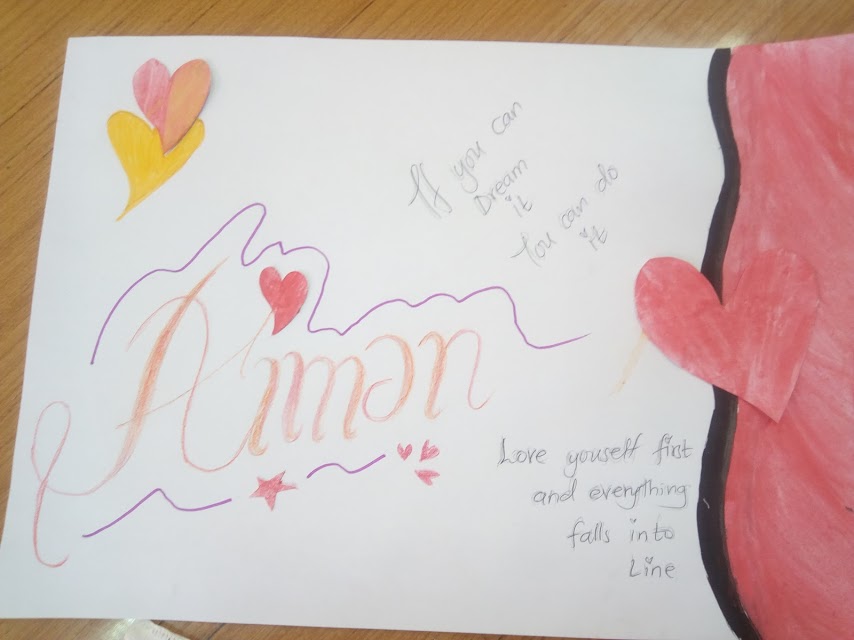 If you can
Dream
it
You can do
it
Aiman
Love youself first
and everything
falls into
Line